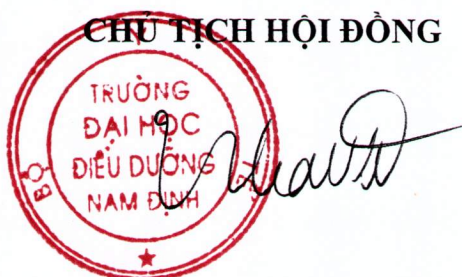 CHỦ TỊCH HỘI ĐỒNG
TRƯỜNG
ĐẠI HỌC
ĐIỀU DƯỠNG
NAM ĐỊNH
BỘ